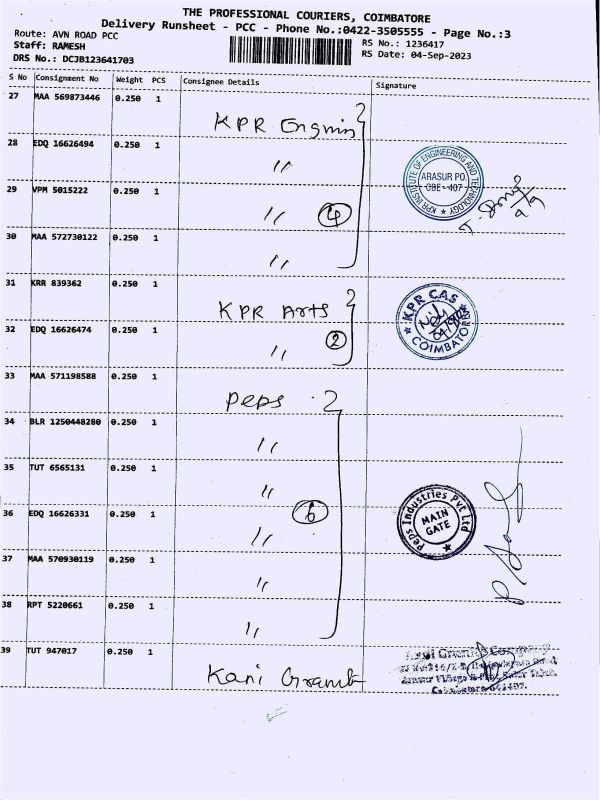 THE PROFESSIONAL COURIERS, COIMBATORE
Delivery Runsheet - PCC - Phone No.:0422-3505555 - Page No.:3
Route: AVN ROAD PCC
Staff: RAMESH
DRS No.: DCJB123641703
RS No.: 1236417
RS Date: 04-Sep-2023
S No Consignment No Weight PCS Consignee Details Signature
27 MAA 569873446 0.250 1 KPR Engnin
28 EDQ 16626494 0.250 1 "
29 VPM 5015222 0.250 1 " 4
30 MAA 572730122 0.250 1 "
KPR INSTITUTE OF ENGINEERING AND TECHNOLOGY
ARASUR PO.
CBE - 407
31 KRR 839362 0.250 1 KPR Arts
32 EDQ 16626474 0.250 1 " 2
KPR CAS
COIMBATORE
33 MAA 571198588 0.250 1 Peps
34 BLR 1250448280 0.250 1 "
35 TUT 6565131 0.250 1 "
36 EDQ 16626331 0.250 1 " 6
37 MAA 570930119 0.250 1 "
38 RPT 5220661 0.250 1 "
Peps Industries Pvt Ltd
MAIN
GATE
39 TUT 947017 0.250 1 Kani
Company
Coimbatore-641407.